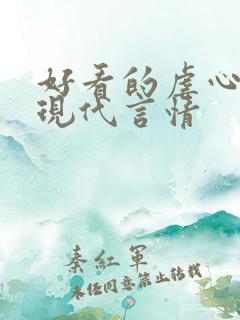 好看的虐心
現代言情
秦紅軍
未经同意禁止转载